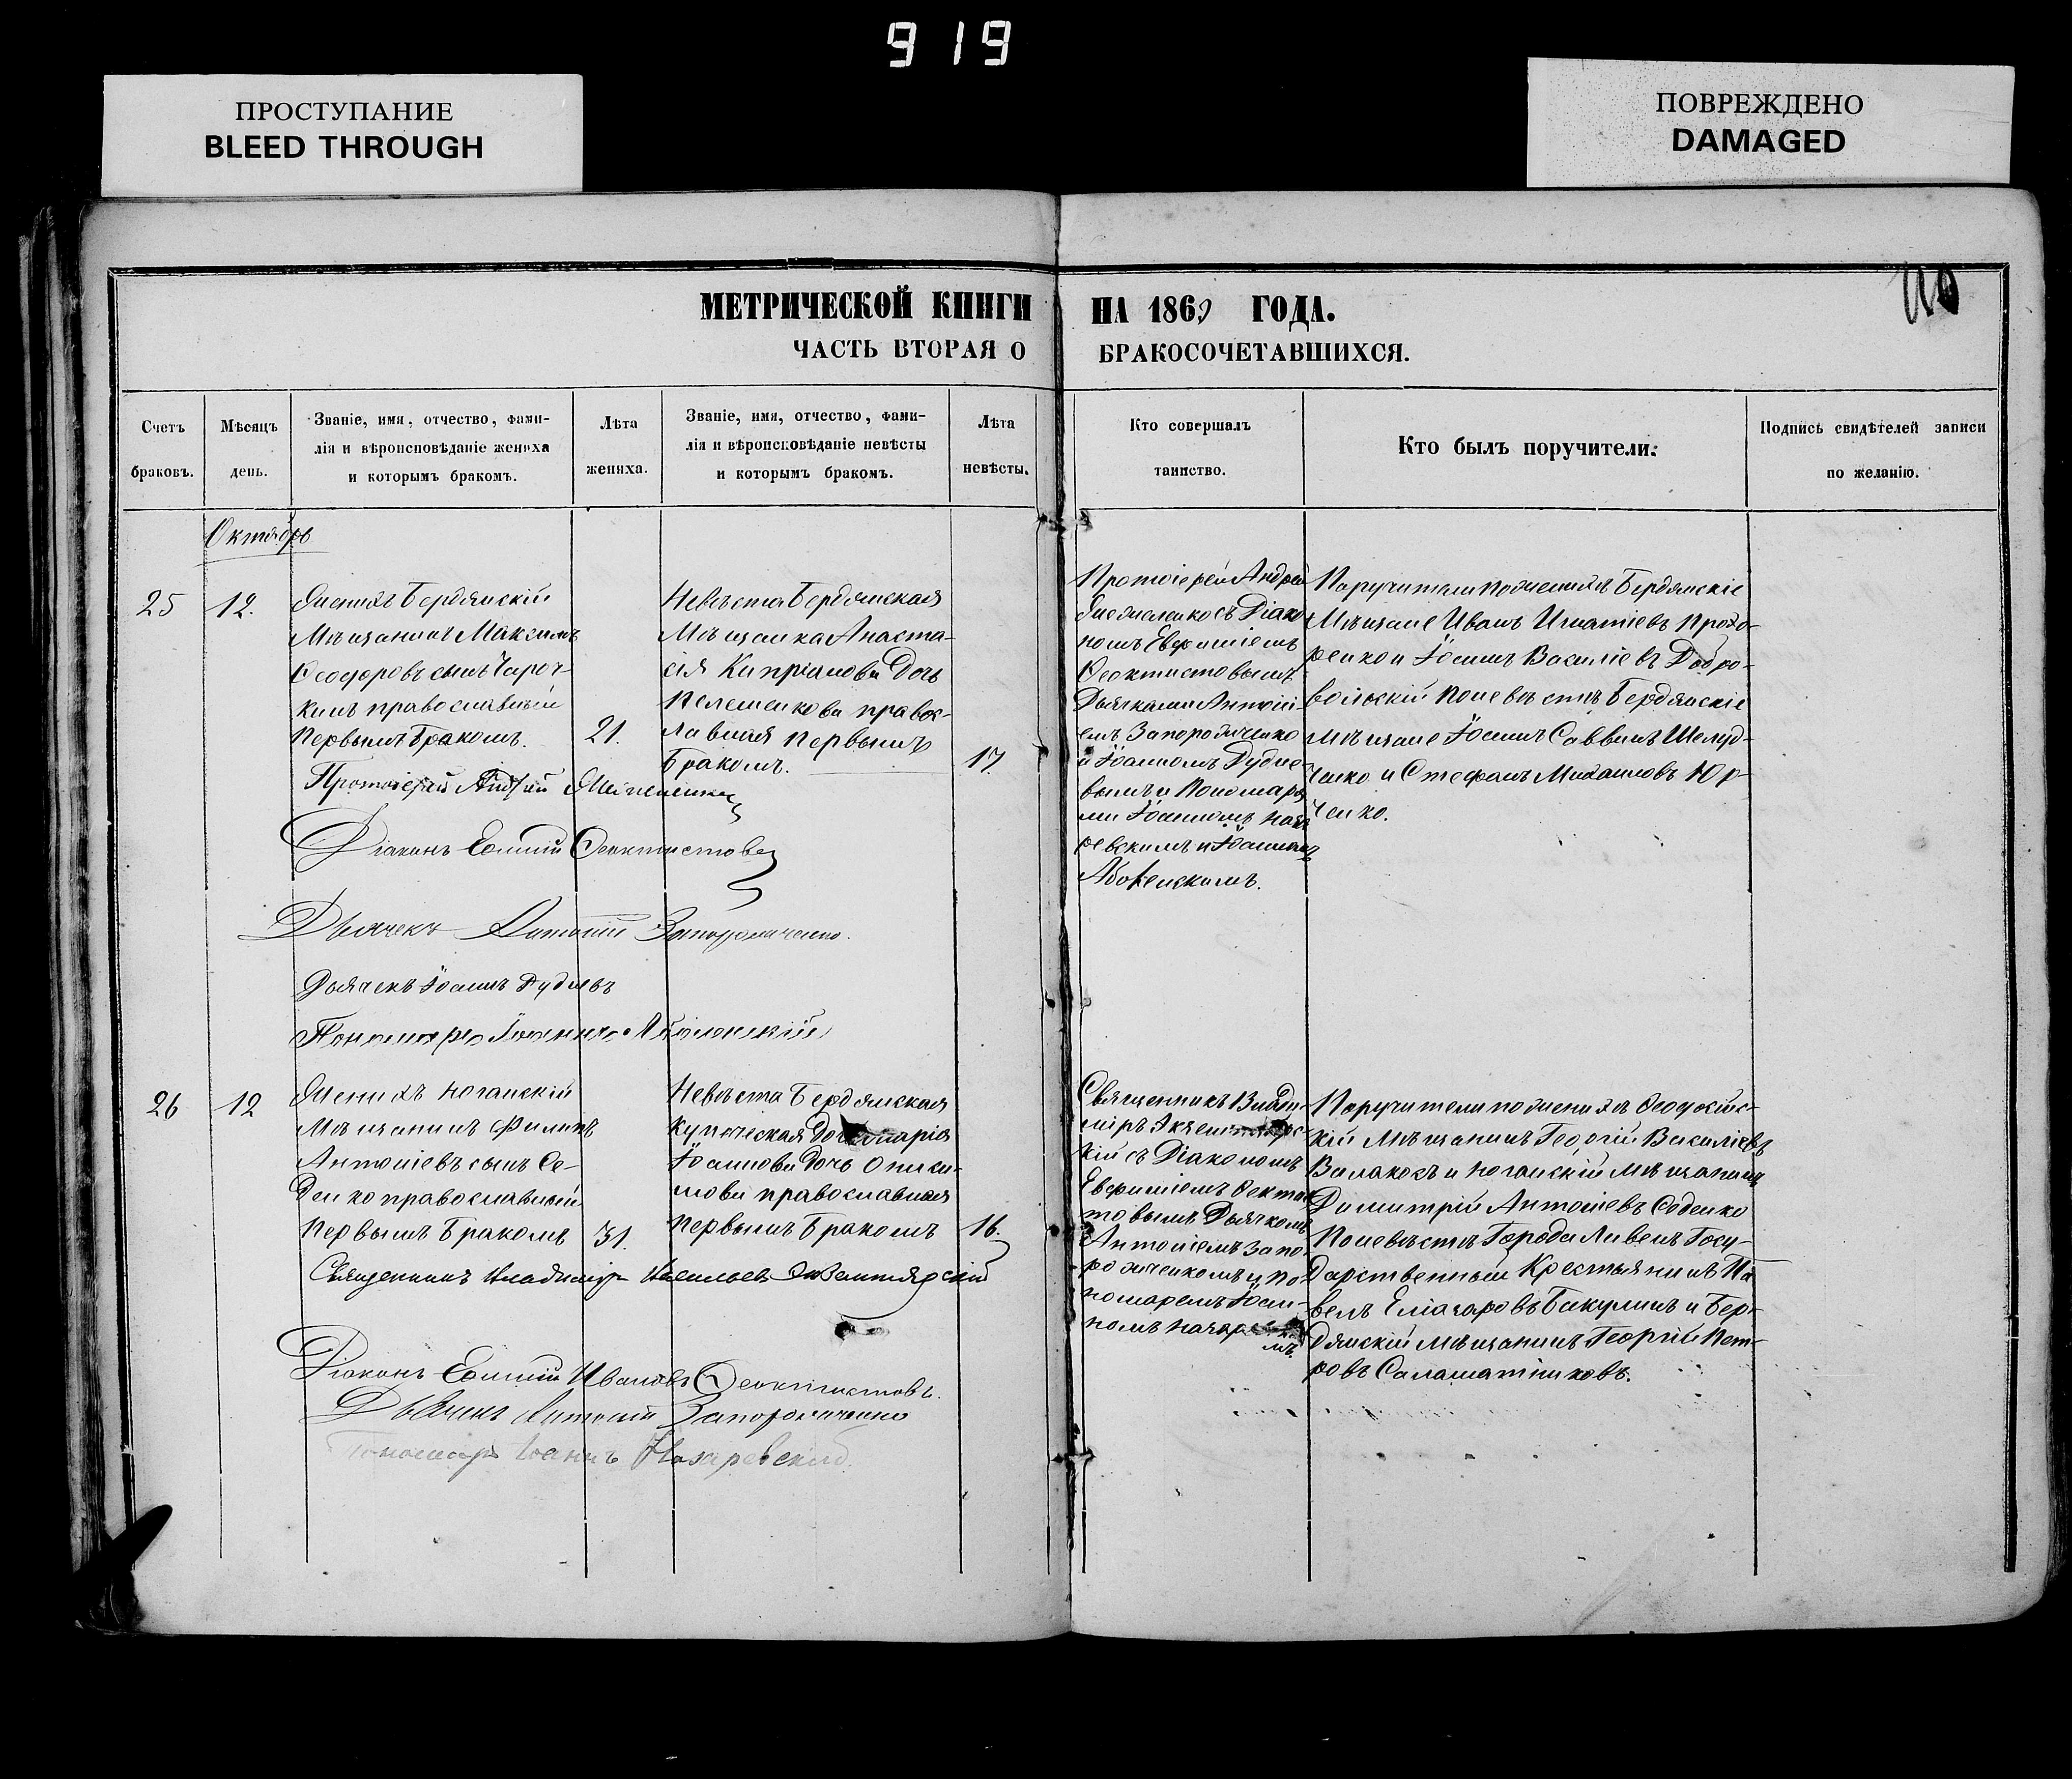 919
ПРОСТУПАНИЕ
BLEED THROUGH
ПОВРЕЖДЕНО
DAMAGED
МЕТРИЧЕСКОЙ КНИГИ НА 1869 ГОДА.
ЧАСТЬ ВТОРАЯ О БРАКОСОЧЕТАВШИХСЯ.
Счетъ
браковъ.
Мѣсяцъ
день.
Званіе, имя, отчество, фами-
лія и вѣроисповѣданіе жениха
и которымъ бракомъ.
Лѣта
жениха.
Званіе, имя, отчество, фами-
лія и вѣроисковѣданіе невѣсты
и которымъ бракомъ.
Лѣта
невѣсты.
Кто совершалъ
таинство.
Кто былъ поручители:
Подпись свидѣтелей записи
по желанію.
Октябрь
25
12.
Женихъ Бердянскій
Мѣщанинъ Максимъ
Ѳеодоровъ сынъ
кинъ православный
первымъ бракомъ.
21.
Невѣста Бердянская
Мѣщанка Анаста-
сія Капріанова дочь
Пелешенкова правос-
лавная первымъ
бракомъ.
17.
Протоіерей Андрей
съ Діако-
номъ Евфиміемъ
Ѳеоктистовымъ
Дьячками Антоні-
емъ Запорожченко
и Іоанномъ Рудне-
вымъ и Пономаря-
ми Іоанномъ Наза-
ревскимъ и Іоанномъ
Поручители по женихѣ Бердянскіе
Мѣщане Иванъ Игнатіевъ Прохо-
ренко и Іоаннъ Василіевъ Добро-
вольскій по невѣстѣ Бердянскіе
мѣщане Іоаннъ Саввинъ Шелуд-
ченко и Стефанъ Михаиловъ Юр-
ченко.
Протоіерей Андрей
Діаконъ Евфимій Ѳеоктистовъ
Дьячекъ Антоній Запорожченко.
Дьячекъ Іоаннъ Рудневъ
Пономарь Іоаннъ
26
12
Женихъ Ногайскій
Мѣщанинъ Филипъ
Антоніевъ сынъ Се-
денко православный
первымъ бракомъ
31.
Невѣста Бердянская
купеческая дочь Марія
Іоаннова дочь Аники-
мова православная
первымъ бракомъ
16.
Священникъ Влади-
міръ
кій съ Діакономъ
Евфиміемъ Ѳеоктис-
товымъ Дьячкомъ
Антоніемъ Запо-
рожченкомъ и по-
номаремъ Іоан-
номъ
Поручители по женихѣ Ѳеодосійс-
кій Мѣщанинъ Георгій Василіевъ
Валакосъ и Ногайскій мѣщанинъ
Димитрій Антоніевъ Седенко
По невѣстѣ Города Ливенъ Госу-
дарственный Крестьянинъ Па-
велъ Еліазаровъ Бакулинъ и Бер-
дянскій мѣщанинъ Георгій Пет-
ровъ Саламатниковъ.
Священникъ Владиміръ Васильевъ
Діаконъ Евфимій Ивановъ Ѳеоктистовъ.
Дьячекъ Антоній Запорожченко
Пономарь Іоаннъ Назаревскій